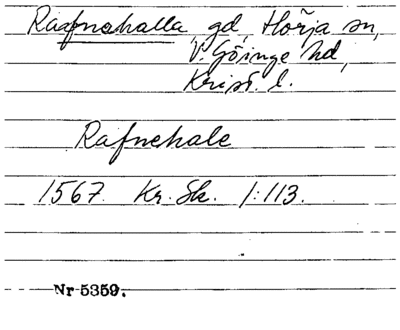 Raafnehalla gd, Hörja sn,
V. Göinge hd,
Krist. l.
Rafnehale
1567. Kr. Sk. 1:113.
Nr 5359.